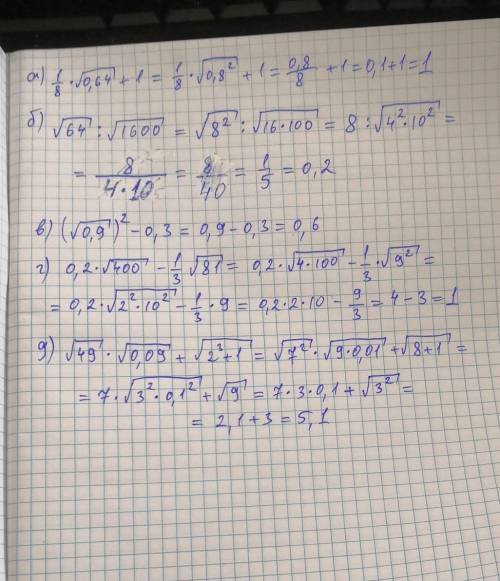 а) 1/8 · √0,64 + 1 = 1/8 · √0,8² + 1 = 0,8/8 + 1 = 0,1+1=1
б) √64 : √1600 = √8² : √16·100 = 8 : √4²·10² =
= 8/4·10 = 8/40 = 1/5 = 0,2
в) (√0,9)² − 0,3 = 0,9 − 0,3 = 0,6
г) 0,2·√400 − 1/3 √81 = 0,2·√4·100 − 1/3·√9² =
= 0,2·√2²·10² − 1/3·9 = 0,2·2·10 − 9/3 = 4 − 3 = 1
д) √49 · √0,09 + √2³+1 = √7² · √9·0,01 + √8+1 =
= 7·√3²·0,1² + √9 = 7·3·0,1 + √3² =
= 2,1+3 = 5,1